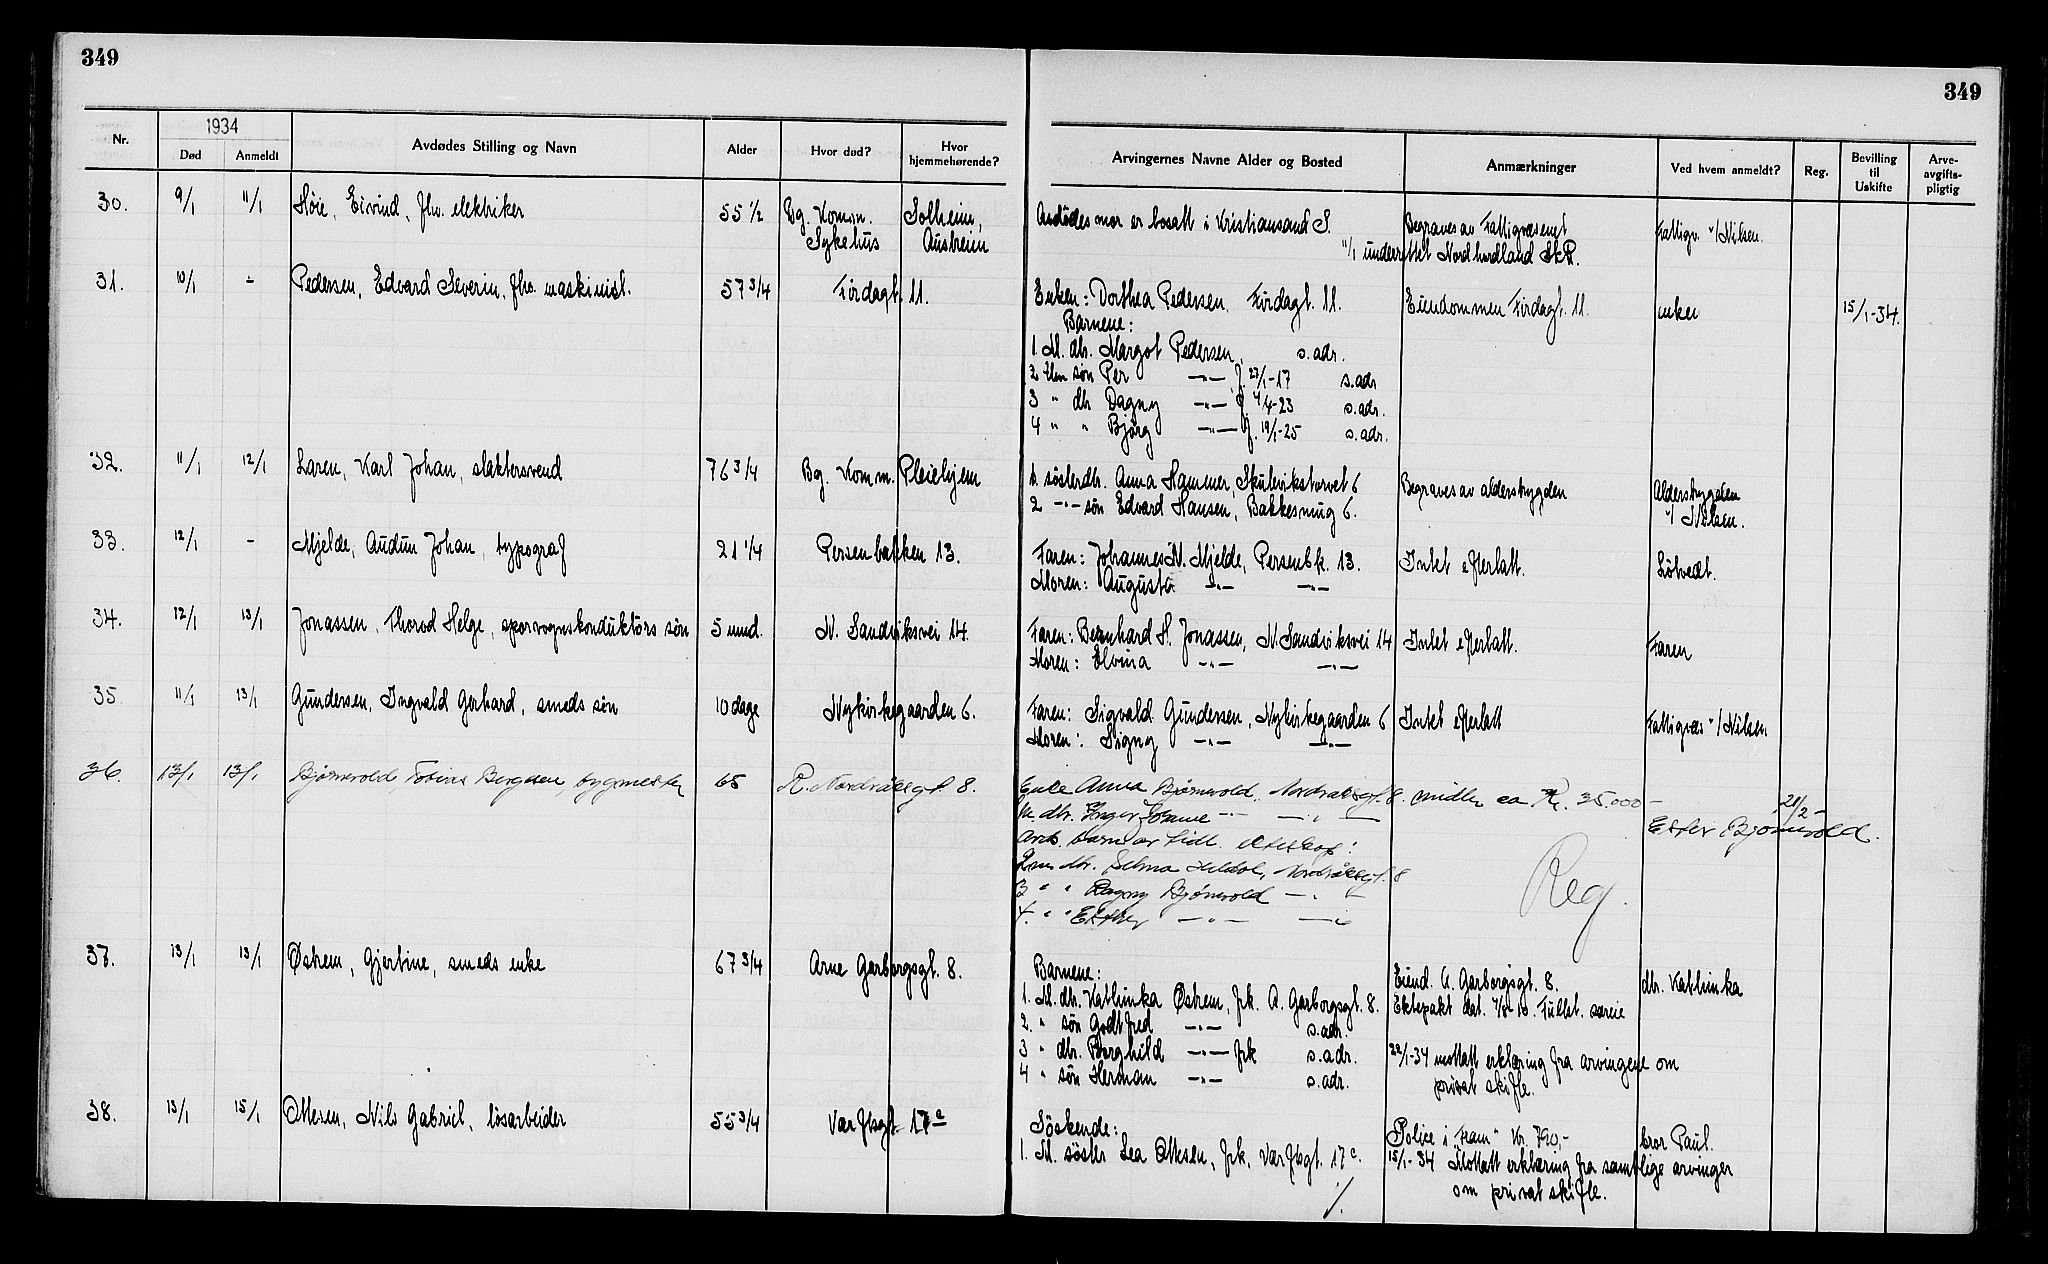 349
349
1934
Nr. Død Anmeldt Avdødes Stilling og Navn Alder Hvor død? Hvor hjemmehørende? Arvingernes Navne Alder og Bosted Anmærkninger Ved hvem anmeldt? Reg. Bevilling til Uskifte Arve-avgifts-pligtig
30. 9/1 11/1 Høie, Eivind, fhv. elektriker 55 1/2 Bg. Komm. Sykehus Solheim, Austreim Avdødes mor er bosatt i Kristiansand S. Begraves av Fattigvæsenet Fattigv. v/ Nilsen.
11/1 underrettet Nordhordland Sk.R.
31. 10/1 - Pedersen, Edvard Severin, fhv. maskinist. 57 3/4 Førdagt. 11. Enken: Dorthea Pedersen, Førdagt. 11. Eiendommen Førdagt. 11. enken 15/1-34.
Barnene:
1. M. dtr. Margot Pedersen, s. adr.
2 Um søn Per -"- f. 27/1-17 s. adr
3 " dtr Dagny -"- f. 4/4-23 s. adr.
4 " " Bjørg -"- f. 19/1-25 s. adr.
32. 11/1 12/1 Laren, Karl Johan, slaktersvend 76 3/4 Bg. Komm. Pleiehjem 1. søsterdtr. Anna Hammer, Skutevikstorvet 6 Begraves av alderstrygden Alderstrygden
2 -"- søn Edvard Hansen, Bakkesmug 6. v/ Nilsen.
33. 12/1 - Mjelde, Audun Johan, typograf 21 1/4 Persenbakken 13. Faren: Johannes N. Mjelde, Persenbk. 13. Intet efterlatt. Løtvedt.
Moren: Augusta -"- -"-
34. 12/1 13/1 Jonassen, Thorod Helge, sporvognskonduktørs søn 5 mnd. N. Sandviksvei 14. Faren: Bernhard H. Jonassen, N. Sandviksvei 14 Intet efterlatt. Faren
Moren: Elvina -"- -"-
35 11/1 13/1 Gundersen, Ingvald Gerhard, smeds søn 10 dage Nykirkegaarden 6. Faren: Sigvald Gundersen, Nykirkegaarden 6 Intet efterlatt Fattigvæs v/ Nilsen
Moren: Signy -"- -"-
36. 13/1 13/1 Bjørnevold, Tobias Bergesen, bygmester 65 R. Nordråksgt. 8. Enke Anna Bjørnevold, Nordraksgt. 8. midler ca Kr. 35.000- 21/2 -
M. dtr. Inger Johanne -"- -"- Ester Bjørnevold.
Avd. barn av tidl. ekteskap:
2 m dtr. Selma Heldal, Nordråksgt. 8
3 " " Ragny Bjørnevold -"-
4. " " Esther -"- -"-
Reg.
37. 13/1 13/1 Østrem, Gjertine, smeds enke 67 3/4 Arne Garborgsgt. 8. Barnene: Eiend. A. Garborgsgt. 8. dtr. Kathinka
1. M. dtr. Kathinka Østrem, frk. A. Garborgsgt. 8. Ektepakt dat. Fullst. særeie
2. " søn Godtfred -"- s. adr.
3 " dtr. Borghild -"- frk s. adr. 22/1-34 mottatt erklæring fra arvingene om
4 " søn Herman -"- s. adr. privat skifte.
38. 13/1 15/1 Ottesen, Nils Gabriel, løsarbeider 55 3/4 Værftsgt. 17c Søskende: Police i "Fram" Kr. 790,- bror Paul.
1. M. søster Lea Ottesen, frk. Værftsgt. 17c. 15/1-34 Mottatt erklæring fra samtlige arvinger
om privat skifte.
./.